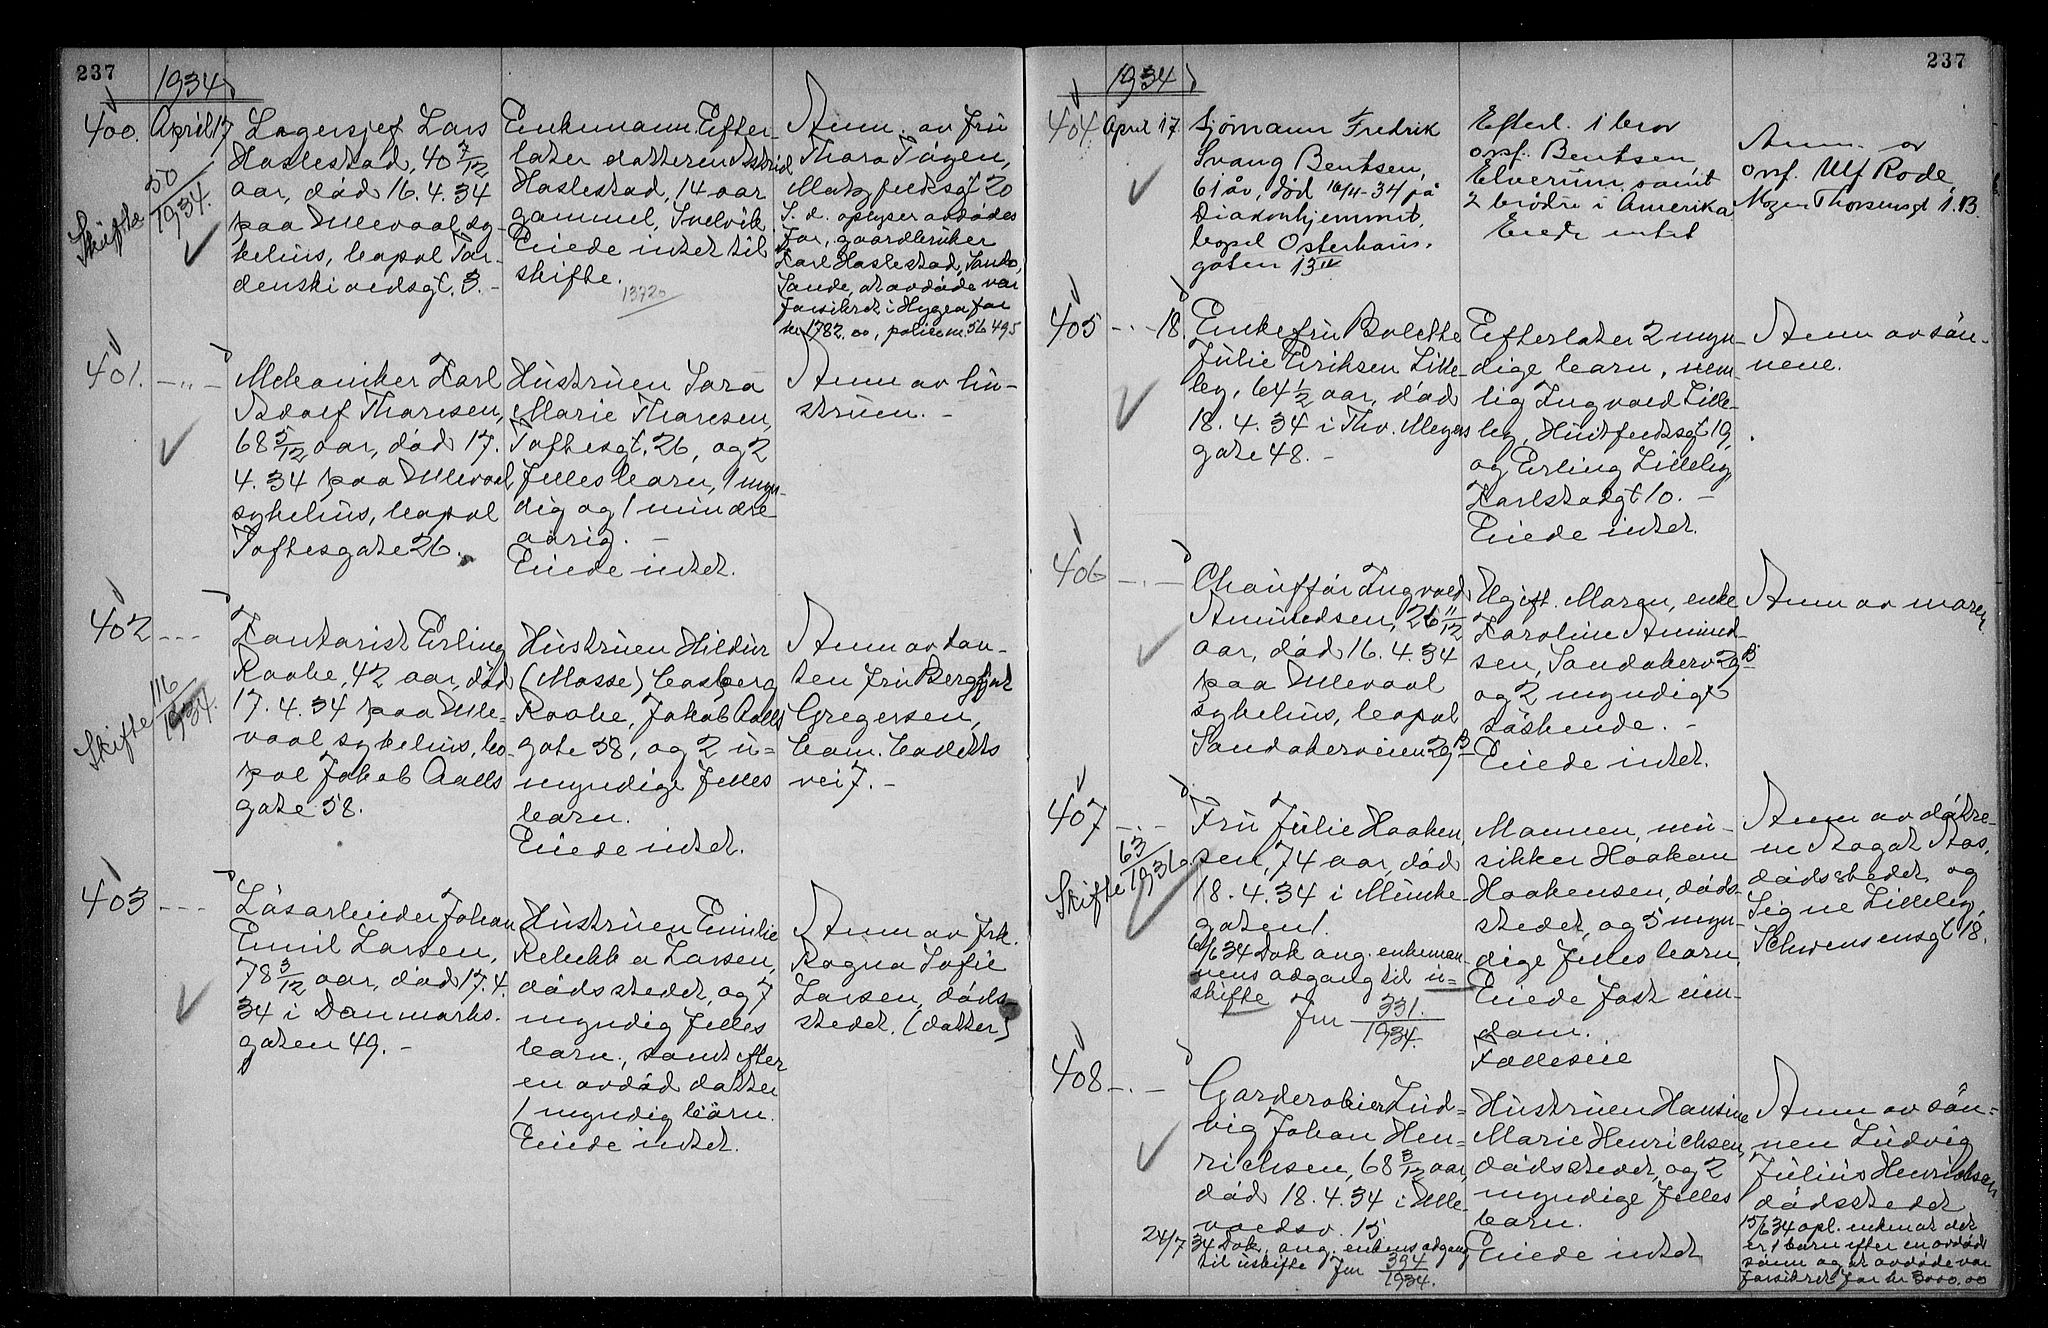 237
1934
400. April 17
Skifte 50/1934.
Lagersjef Lars
Haslestad, 40 7/12
aar, död 16.4.34
paa Ullevaal sy-
kehus, bopæl Tor-
denskioldsgt. 3. -
Enkemann. Efter-
later datteren Astrid
Haslestad, 14 aar
gammel, Svelvik
Eiede intet til
skifte.
13720
Anm. av fru
Thora Tågen,
Matz
S. d. oplyser avdödes
far, gaardbruker
Karl Haslestad, Sando,
Sande, at avdöde var
forsikret i Hygea for
kr 1782.00, polise nr. 56495
401. -"-
Mekaniker Karl
Adolf Thoresen,
68 5/12 aar, död 17.
4.34 paa Ullevaal
sykehus, bopæl
Toftesgate 26.
Hustruen Sara
Marie Thoresen,
Toftesgt. 26, og 2
felles barn, 1 myn-
dig og 1 mindre-
aarig. -
Eiede intet.
Anm av hu-
struen. -
402 - - -
Skifte 116/1934.
Kontorist Erling
Raabe, 42 aar, död
17.4.34 paa Ulle-
vaal sykehus, bo-
pæl Jakob Aalls
gate 58.
Hustruen Hildur
(Mosse) Casberg
Raabe, Jakob Aalls
gate 58, og 2 u-
myndige felles
barn.
Eiede intet.
Anm av tan-
ten fru Bergljot
Gregersen,
Cam. Colletts
vei 7. -
403 - - -
Lösarbeider Johan
Emil Larsen,
78 3/12 aar, död 17.4.
34 i Danmarks-
gaten 49. -
Hustruen Emilie
Rebekka Larsen,
dödsstedet, og 7
myndig felles
barn, samt efter
en avdöd datter
1 myndig barn.
Eiede intet.
Anm av frk.
Ragna Sofie
Larsen, döds-
stedet. (datter)
237
1934
404. April 17.
Sjömann Fredrik
Svang Bentsen,
61 år, död 16/4-34 på
Diakonhjemmet,
bopel Osterhaus-
gaten 13 IV
Efterl. 1 bror
Bentsen
Elverum, samt
2 brödre i Amerika
Eiede intet
Anm. av
Ulf Rode,
Thoresensgt 1.B.
405 -"- 18.
Enkefru Bolette
Julie Eriksen Lille-
by, 64 1/2 aar, död
18.4.34 i Thv. Meyers
gate 48. -
Efterlater 2 myn-
dige barn, nem-
lig Ingvald Lille-
by, Huitfeldtsgt 19,
og Erling Lilleby,
Karlstadgt 10. -
Eiede intet.
Anm av sön-
nene.
406 -"-
Chauffør Ingvald
Amundsen, 26 11/12
aar, död 16.4.34
paa Ullevaal
sykehus, bopæl
Sandakerveien 29 B
Ugift. Moren, enke
Karoline Amund-
sen, Sandakerv 29 B
og 2 myndige
söskende. -
Eiede intet.
Anm av moren
407 -"-
Skifte 63/1936.
Fru Julie Haaken-
sen, 74 aar, död
18.4.34 i Munke-
gaten 1.
6/6 34 Dok ang. enkeman-
nens adgang til u-
skifte
Jnr 331./1934.
Mannen, mu-
sikker Haakon
Haakensen, döds-
stedet, og 5 myn-
dige felles barn
Eiede fast eien-
dom.
Fælleseie
Anm av döttre-
ne Aagot Aas,
dödsstedet og
Signe Lilleby,
Schwensensgt 18.
408 -"-
Garderobier Lud-
vig Johan Hen-
richsen, 68 3/12 aar,
död 18.4.34 i Ulle-
vaalsv. 15
24/7 34 Dok, ang. enkens adgang
til uskifte Jnr 394/1934.
Hustruen Hansine
Marie Henrichsen,
dödsstedet, og 2
myndige felles
barn.
Eiede intet
Anm av sön-
nen Ludvig
Julius Henrichsen
dödsstedet
15/6 34 opl. enken at det
er 1 barn efter en avdöd
sönn og at avdöde var
forsikret for kr 3000.00